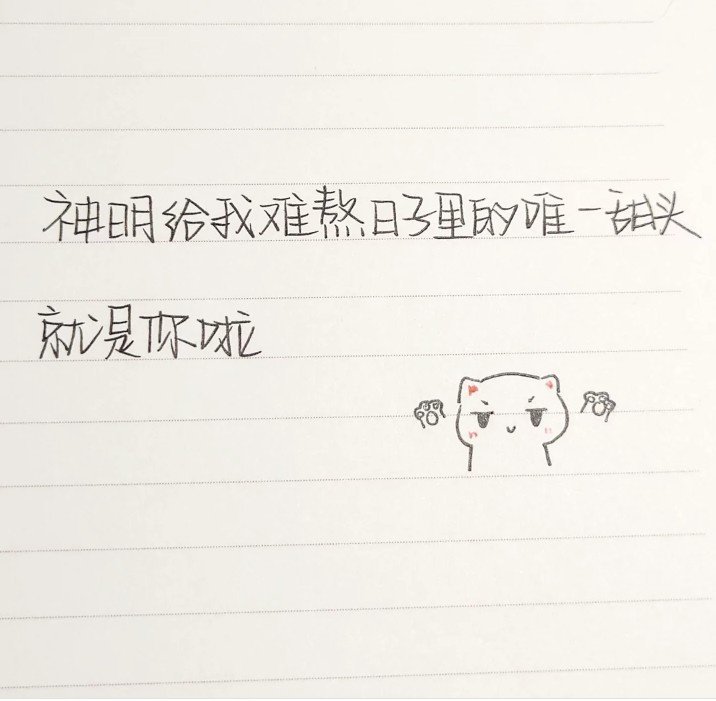 神明给我难熬日子里的唯一甜头
就是你啦